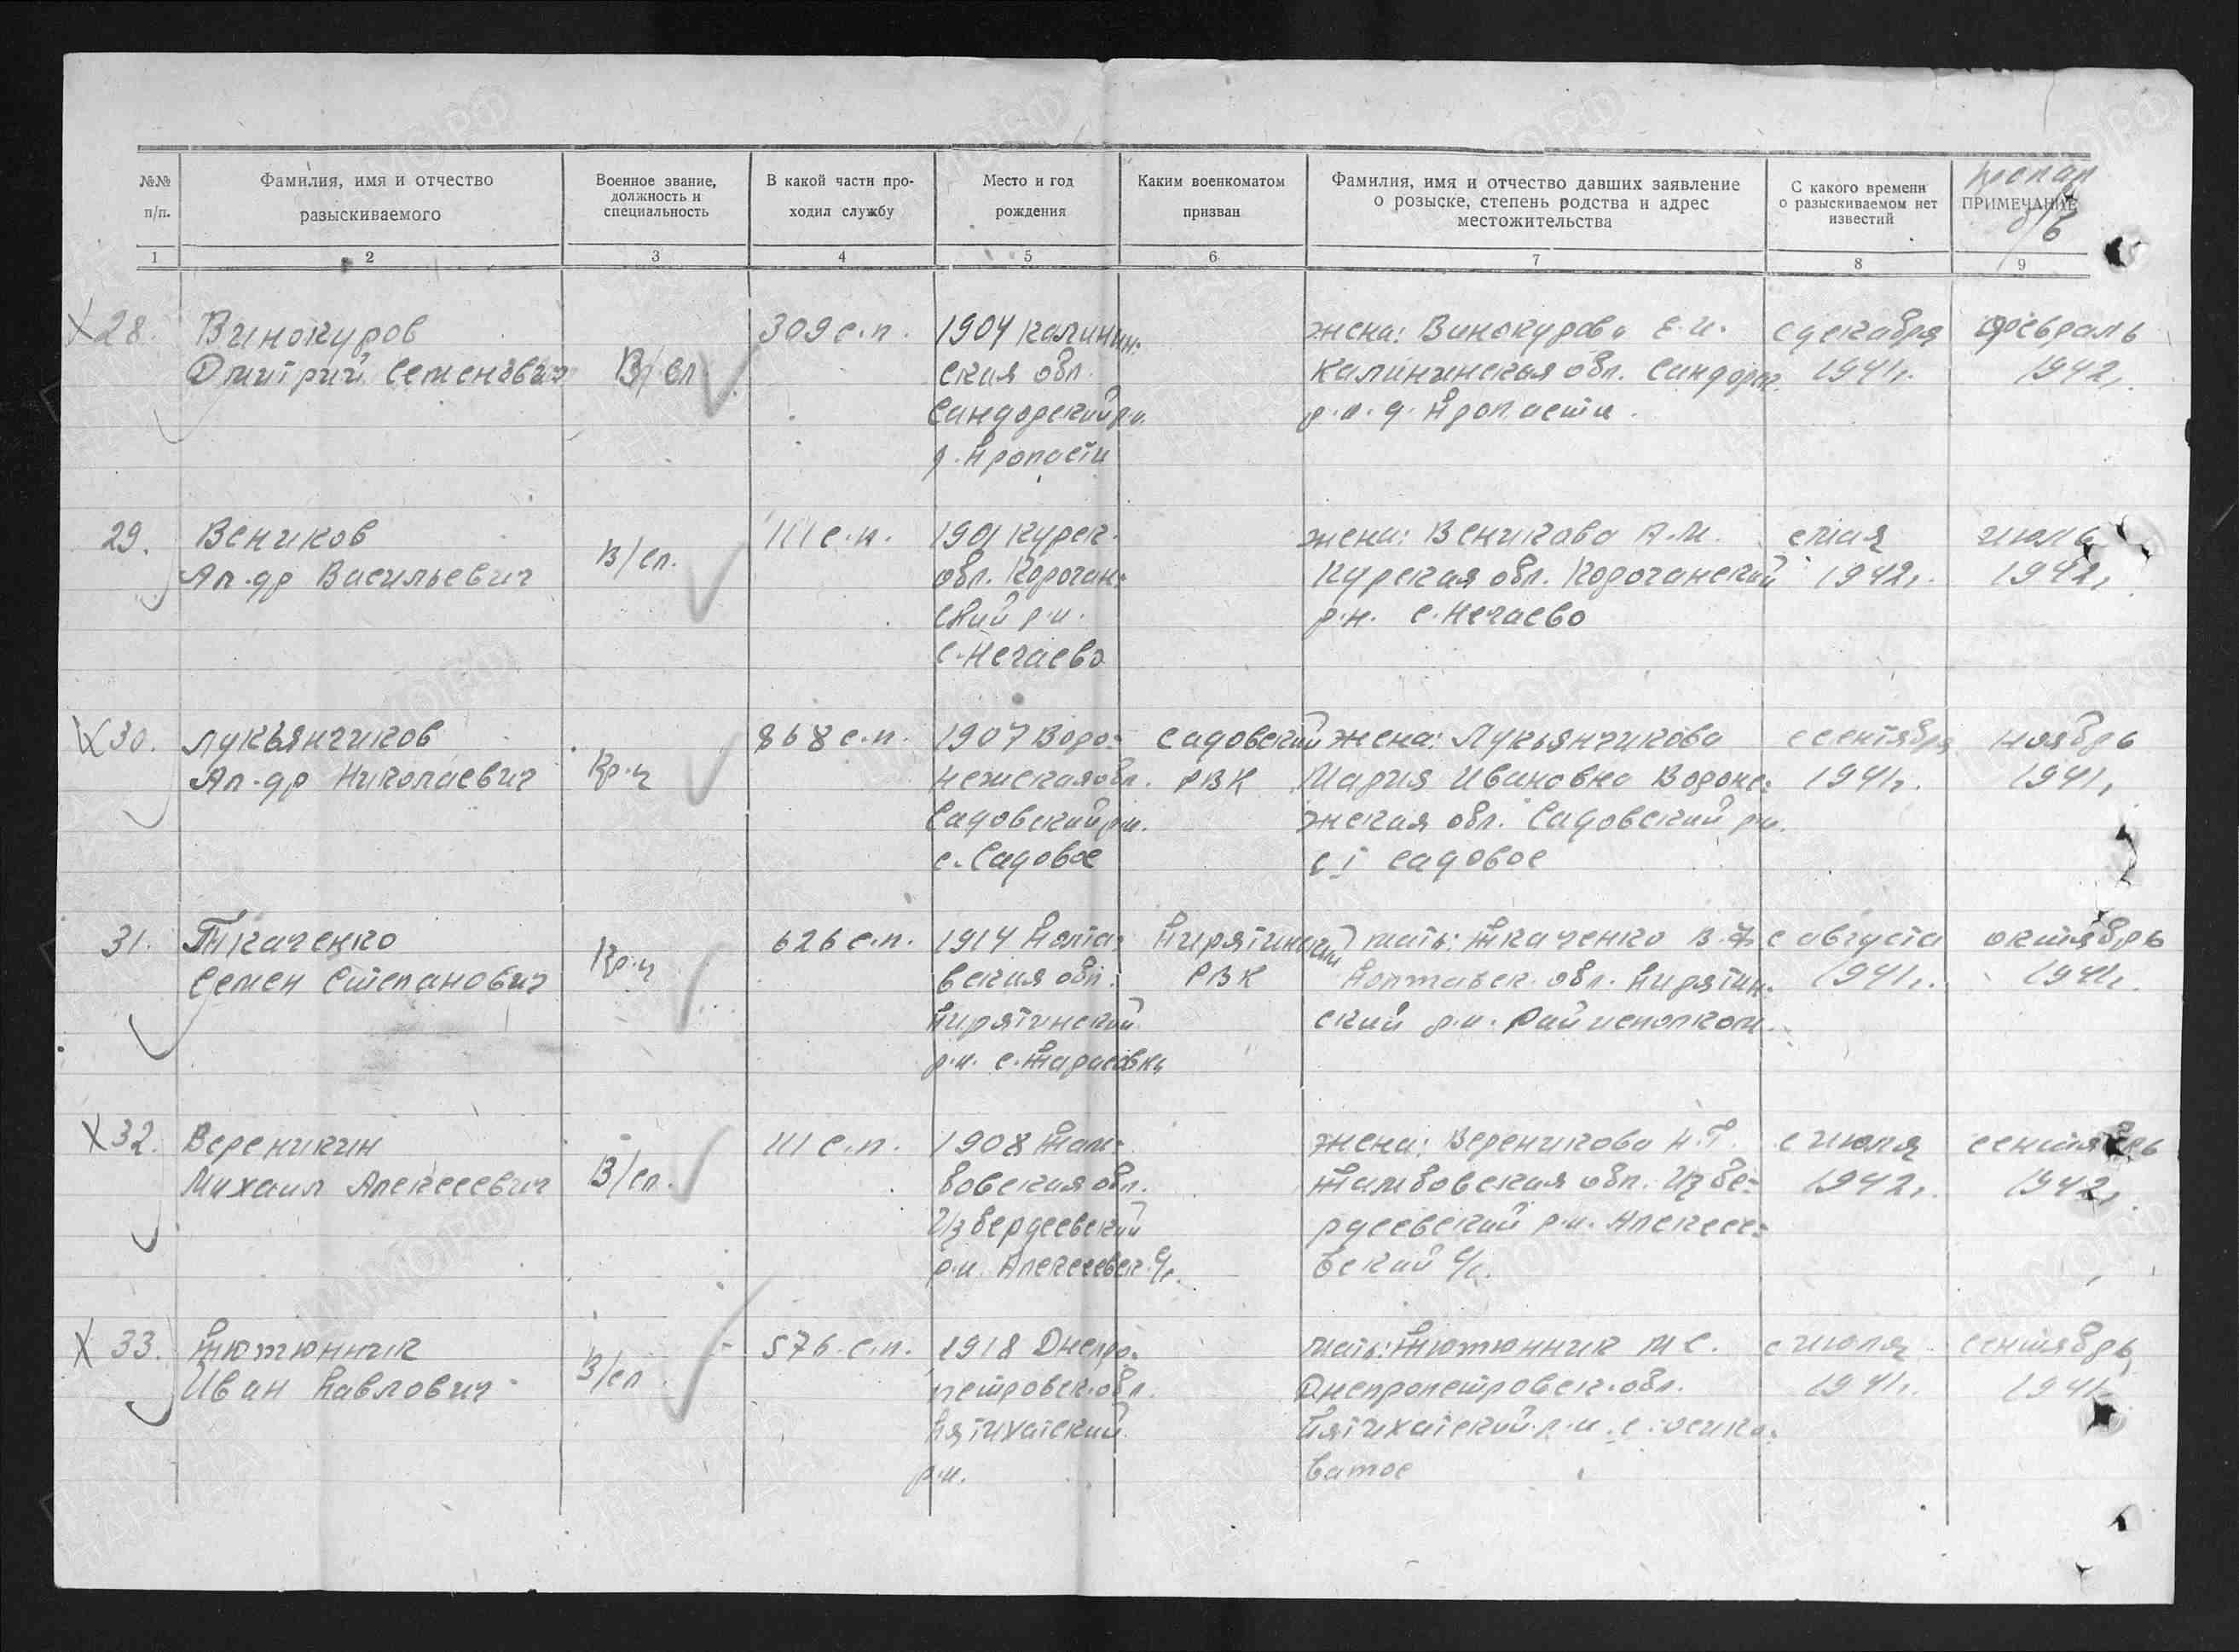 №№ п/п.
Фамилия, имя и отчество
разыскиваемого
Военное звание,
должность и
специальность
В какой части про-
ходил службу
Место и год
рождения
Каким военкоматом
призван
Фамилия, имя и отчество давших заявление
о розыске, степень родства и адрес
местожительства
С какого времени
о разыскиваемом нет
известий
пропал
ПРИМЕЧАНИЕ
б/в
1 2 3 4 5 6 7 8 9
28. Винокуров
Дмитрий Семенович
В/сл
309 с.п.
1904 Калинин-
ская обл.
Сандовский р.н.
д. Пропасти
жена: Винокурова Е.И.
Калининская обл. Сандовск.
р.н. д. Пропасти.
с декабря
1941г.
февраль
1942г.
29. Веников
Ал-др Васильевич
В/сл.
111 с.п.
1901 Курск.
обл. Корочан-
ский р.н.
с. Нечаево
жена: Веникова А.М.
Курская обл. Корочанский
р.н. с. Нечаево
с мая
1942г.
июль
1942г.
30. Лукьянчиков
Ал-др Николаевич
Кр-ц
868 с.п.
1907 Воро-
нежская обл.
Садовский р.н.
с. Садовое
Садовский
РВК
жена: Лукьянчикова
Мария Ивановна Вороне-
жская обл. Садовский р.н.
с I Садовое
с сентября
1941г.
ноябрь
1941г.
31. Ткаченко
Семен Степанович
Кр-ц
626 с.п.
1914 Полта-
вская обл.
Пирятинский
р.н. с. Тарасовка
Пирятинский
РВК
мать: Ткаченко В.Ф.
Полтавск. обл. Пирятин-
ский р.н. Райисполком.
с августа
1941г.
октябрь
1941г.
32. Вереникин
Михаил Алексеевич
В/сл.
111 с.п.
1908 Там-
бовская обл.
Избердеевский
р.н. Алексеевск. с/с.
жена: Вереникова Н.Т.
Тамбовская обл. Избе-
рдеевский р.н. Алексее-
вский с/с.
с июля
1942г.
сентябрь
1942г.
33. Тютюнник
Иван Павлович
В/сл
576 с.п.
1918 Днепро-
петровск. обл.
Пятихатский
р.н.
мать: Тютюнник М С.
Днепропетровск. обл.
Пятихатский р.н. с. Осико-
ватое
с июля
1941г.
сентябрь
1941г.